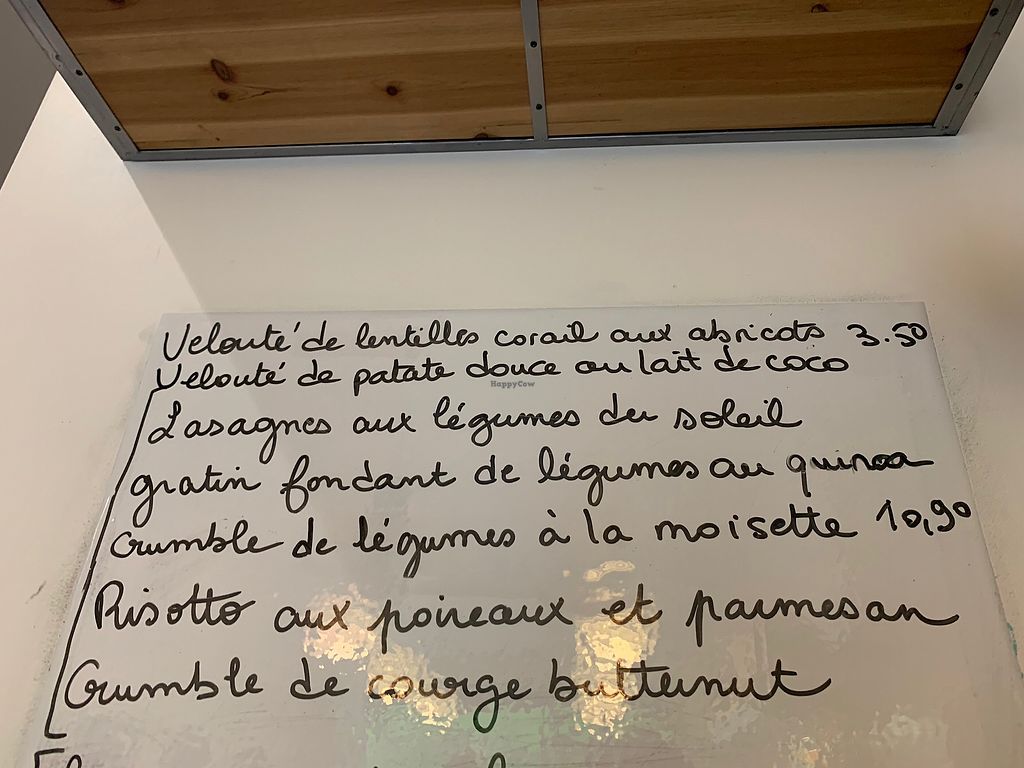 Velouté de lentilles corail aux abricots 3.50
Velouté de patate douce au lait de coco
HappyCow
Lasagnes aux légumes du soleil
gratin fondant de légumes au quinoa
crumble de légumes à la noisette 10,90
Risotto aux poireaux et parmesan
Crumble de courge butternut